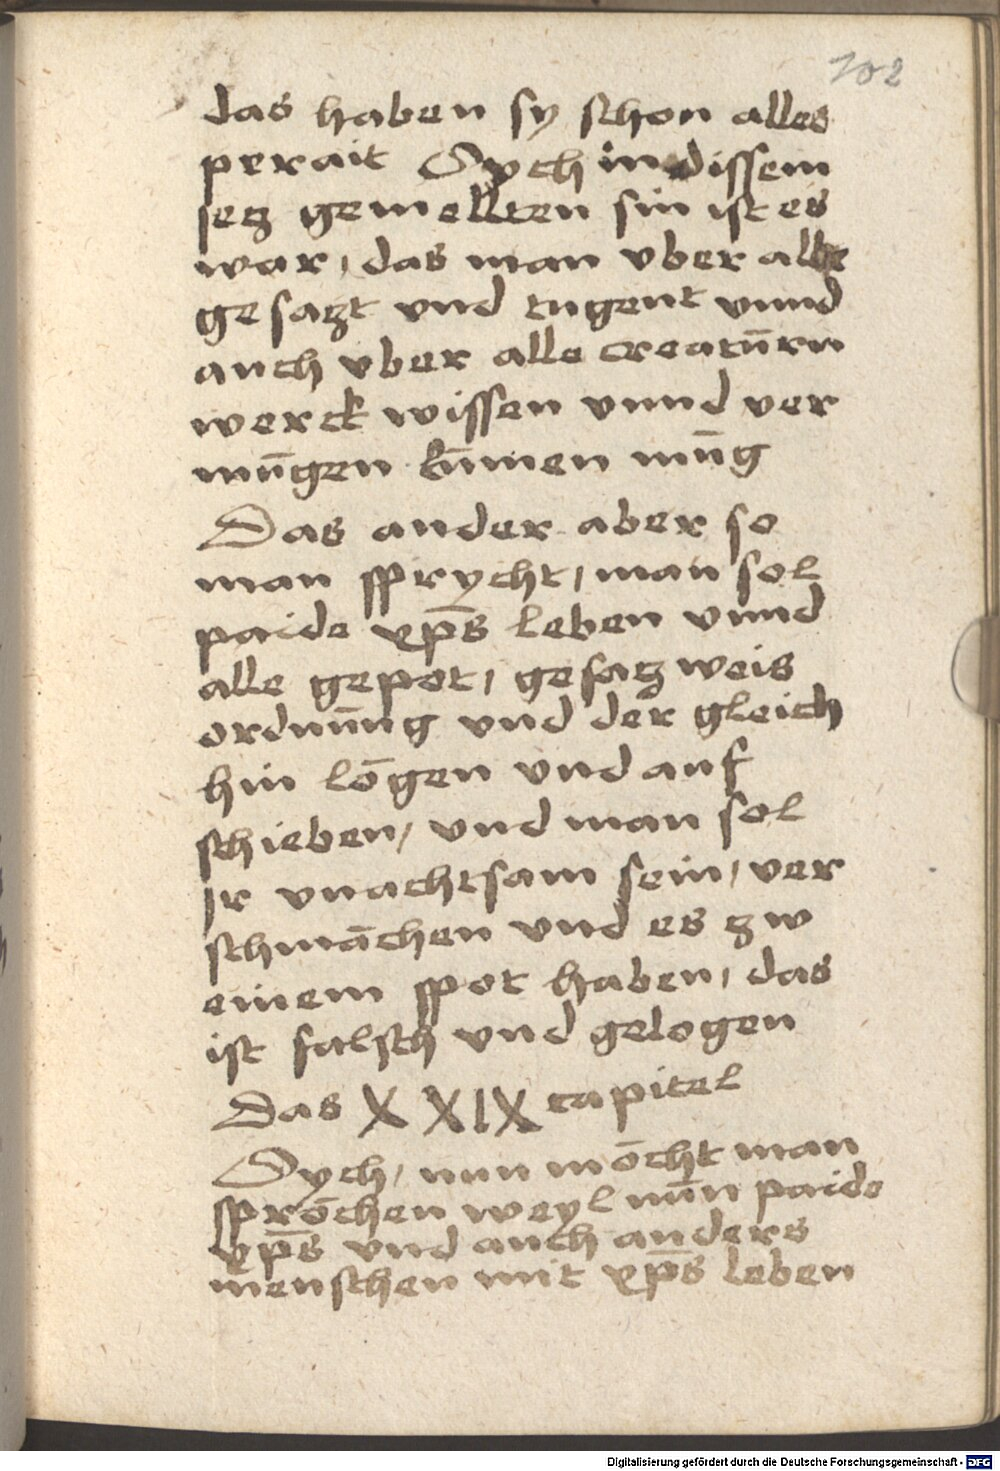 102
das haben sy schon alles
perait Sych in dissem
seg gemellten sin ist es
war, das man vber alle
gesagt vnd tugent vnnd
auch vber alle creatūrn
werck wissen vnnd ver
mūgen kūmen mūg
Das ander aber so
man sprycht, man sol
paide xp̄s leben vnnd
alle gepot, gesatz weis
ordnūng vnd der gleich
hin lōgen vnd auf
schieben, vnd man sol
Ir vnachtsam sein, ver
schmāchen vnd es zw
einem spot haben, das
ist falsch vnd gelogen
Das XXIX capitel
Sych, nun mōcht man
sprōchen weyl nūn paide
xp̄s vnd auch anders
menschen mit xp̄s leben
Digitalisierung gefördert durch die Deutsche Forschungsgemeinschaft - DFG